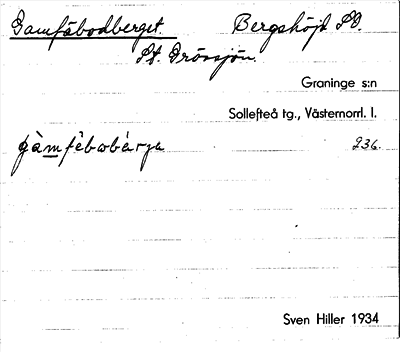 Gamfäbodberget Bergshöjd SO.
St. Grössjön.
Graninge s:n
Sollefteå tg., Västernorrl. l.
gàmfèbobærja 236.
Sven Hiller 1934